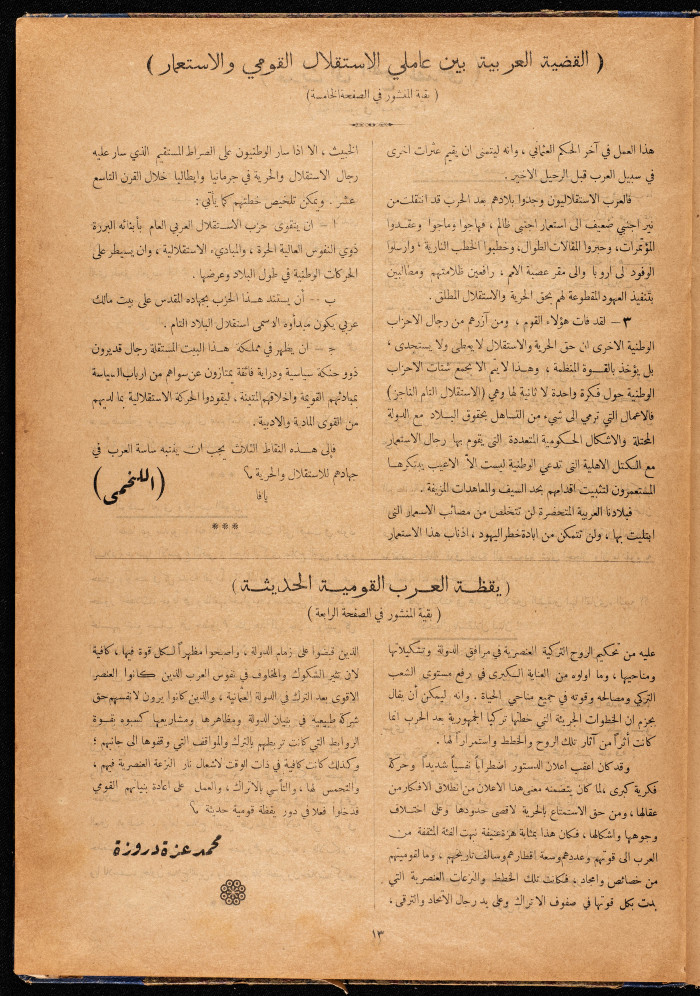 ( القضية العربية بين عاملي الاستقلال القومي والاستعمار )
( بقية المنشور في الصفحة الخامسة )
هذا العمل في آخر الحكم العثماني ، وانه ليتمنى ان يقيم عثرات اخرى
في سبيل العرب قبل الرحيل الاخير .
فالعرب الاستقلاليون وجدوا بلادهم بعد الحرب قد انتقلت من
نير اجنبي ضعيف الى استعمار اجنبي ظالم ، فهاجوا وماجوا وعقدوا
المؤتمرات ، وحبروا المقالات الطوال ، وخطبوا الخطب النارية ؛ وارسلوا
الوفود الى اروبا والى مقر عصبة الامم ، رافعين ظلامتهم ومطالبين
بتنفيذ العهود المقطوعة لهم بحق الحرية والاستقلال المطلق .
٣ – لقد فات هؤلاء القوم ، ومن آزرهم من رجال الاحزاب
الوطنية الاخرى ان حق الحرية والاستقلال لا يعطى ولا يستجدى ،
بل يؤخذ بالقوة المنظمة ، وهذا لا يتم الا بجمع شتات الاحزاب
الوطنية حول فكرة واحدة لا ثانية لها وهي (الاستقلال التام الناجز)
فالاعمال التي ترمي الى شيء من التساهل بحقوق البلاد مع الدولة
المحتلة والاشكال الحكومية المتعددة التى يقوم بها رجال الاستعمار
مع الكتل الاهلية التى تدعي الوطنية ليست الاّ الاعيب يبتكرها
المستعمرون لتثبيت اقدامهم بحد السيف والمعاهدات المزيفة .
فبلادنا العربية المتحضرة لن تتخلص من مصائب الاسعمار التى
ابتليت بها ، ولن تتمكن من ابادة خطر اليهود ، اذناب هذا الاستعمار
الخبيث ، الا اذا سار الوطنيون على الصراط المستقيم الذي سار عليه
رجال الاستقلال والحرية في جرمانيا وايطاليا خلال القرن التاسع
عشر . ويمكن تلخيص خطتهم كما يأتي :
ا – ان يتقوى حزب الاستقلال العربي العام بأبنائه البررة
ذوي النفوس العالية الحرة ، والمبادىء الاستقلالية ، وان يسيطر على
الحركات الوطنية في طول البلاد وعرضها .
ب – أن يستند هذا الحزب بجهاده المقدس على بيت مالك
عربي يكون مبدأوه الاسمى استقلال البلاد التام .
ج – ان يظهر في مملكة هذا البيت المستقلة رجال قديرون
ذوو حنكة سياسية ودراية فائقة يمتازون عن سواهم من ارباب السياسة
بمبادئهم القويمة واخلاقهم المتينة ، ليقودوا الحركة الاستقلالية بما لديهم
من القوى المادية والادبية .
فالى هذه النقاط الثلاث يجب ان ينتبه ساسة العرب في
جهادهم للاستقلال والحرية ؟
يافا
( اللخمى )
***
( يقظة العرب القومية الحديثة )
( بقية المنشور في الصفحة الرابعة )
عليه من تحكيم الروح التركية العنصرية في مرافق الدولة وتشكيلاتها
ومناحيها ، وما اولوه من العناية الكبرى في رفع مستوى الشعب
التركي ومصالحه وقوته في جميع مناحي الحياة . وانه ليمكن أن يقال
بجزم ان الخطوات الجريئة التي خطتها تركيا الجمهورية بعد الحرب انما
كانت أثراً من آثار تلك الروح والخطط واستمراراً لها .
وقد كان اعقب اعلان الدستور اضطراباً نفسياً شديداً وحركة
فكرية كبرى ، لما كان يتضمنه معنى هذا الاعلان من انطلاق الافكار من
عقالها ، ومن حق الاستمتاع بالحرية لاقصى حدودها وعلى اختلاف
وجوهها واشكالها ، فكان هذا بمثابة هزة عنيفة نبهت الفئة المثقفة من
العرب الى قوتهم وعددهم وسعة اقطارهم وسالف تاريخهم ، وما لقوميتهم
من خصائص وامجاد ، فكانت تلك الخطط والنزعات العنصرية التي
بدت بكل قوتها في صفوف الاتراك وعلى يد رجال الاتحاد والترقى ،
الذين قبضوا على زمام الدولة ، واصبحوا مظهراً لكل قوة فيها ، كافية
لان تثير الشكوك والمخاوف في نفوس العرب الذين كانوا العنصر
الاقوى بعد الترك في الدولة العثمانية ، والذين كانوا يرون لانفسهم حق
شركة طبيعيه في بنيان الدولة ومظاهرها ومشاريعها كسبوه بقوة
الروابط التي كانت تربطهم بالترك والمواقف التي وقفوها الى جانبهم ؛
وكذلك كانت كافية في ذات الوقت لاشعال نار النزعة العنصرية فيهم ،
والتحمس لها ، والتأسي بالاتراك ، والعمل على اعادة بنيانهم القومي
فدخلوا فعلا في دور يقظة قومية حديثة ؟
محمد عزة دروزة
١٣